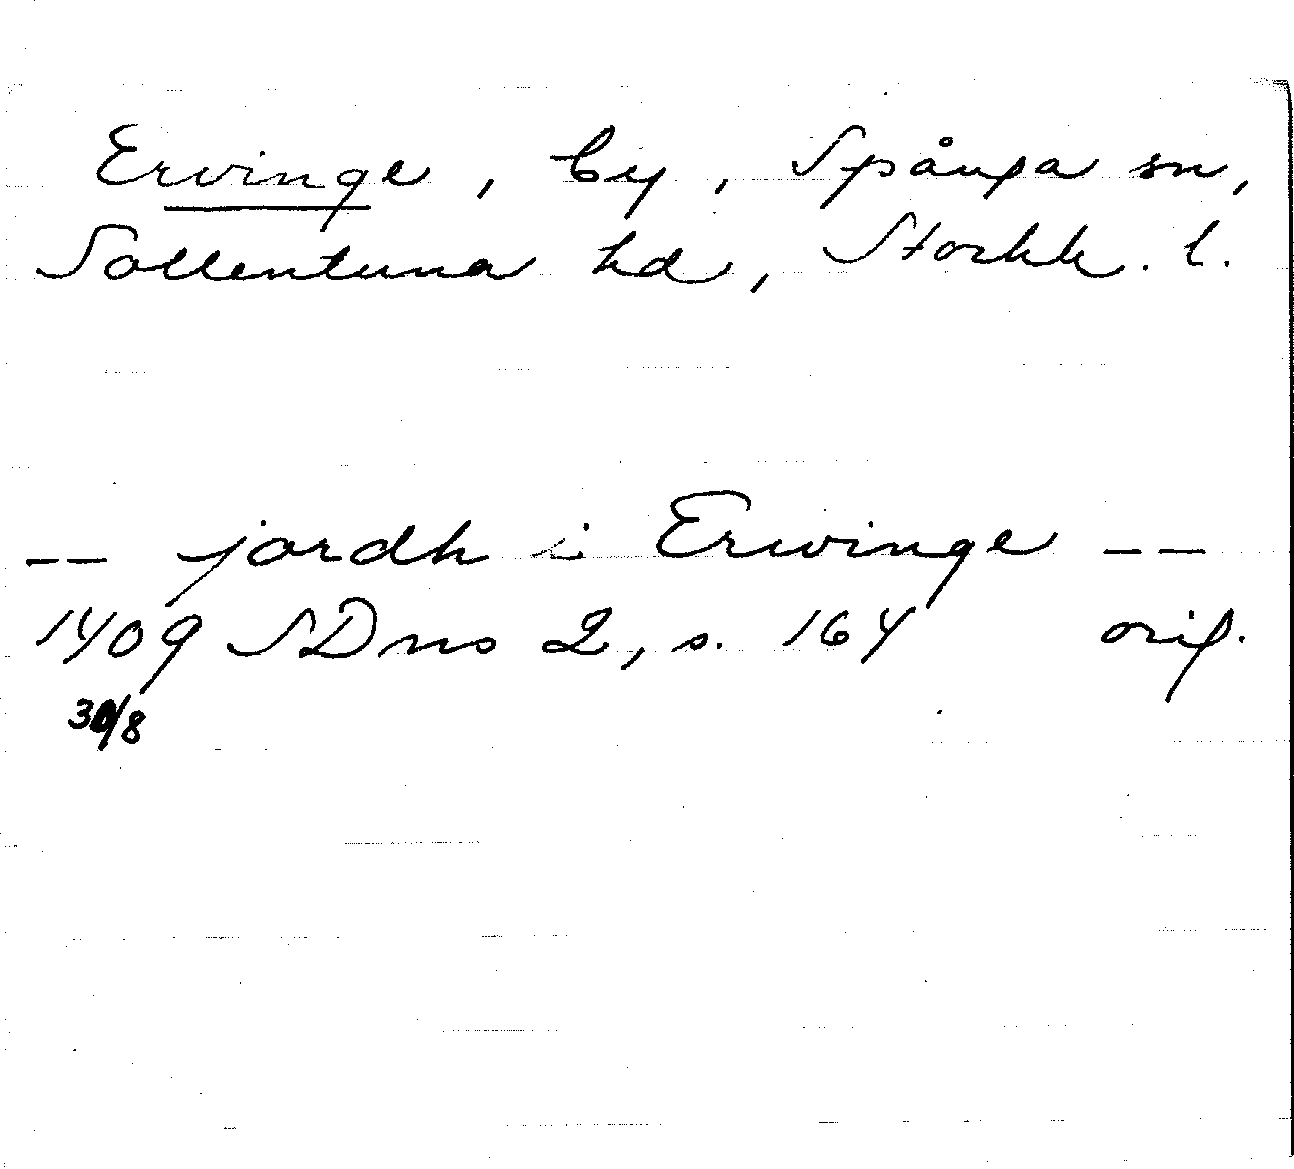 Ervinge, by, Spånga sn,
Sollentuna hd, Stockh. l.
-- jordh i Erwinge --
1409 SDns 2, s. 164 orig.
30/8